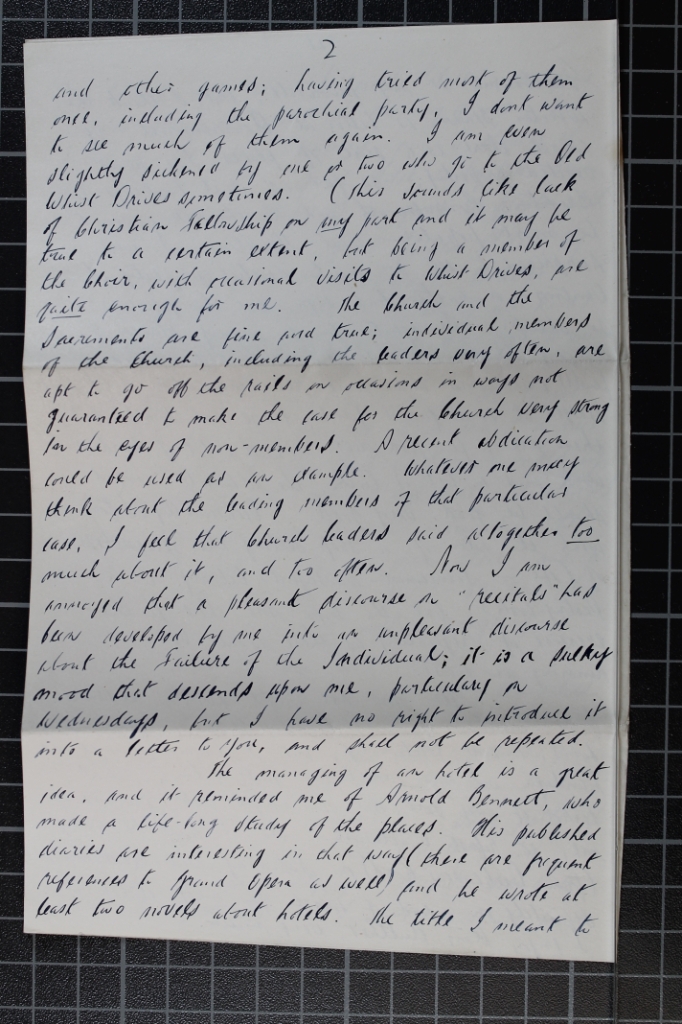 2
and other games; having tried most of them
once, including the parochial party, I don't want
to see much of them again. I am even
slightly sickened by one or two who go to the Old
Whist Drives sometimes. (This sounds like lack
of Christian Fellowship on my part and it may be
true to a certain extent, but being a member of
the Choir, with occasional visits to Whist Drives, are
quite enough for me. The Church and the
Sacraments are fine and true; individual members
of the Church, including the leaders very often, are
apt to go off the rails on occasions in ways not
guaranteed to make the case for the Church very strong
in the eyes of non-members. A recent abdication
could be used as an example. Whatever one may
think about the leading members of that particular
case, I feel that Church leaders said altogether too
much about it, and too often. Now I am
annoyed that a pleasant discourse on "recitals" has
been developed by me into an unpleasant discourse
about the Failure of the Individual; it is a sulky
mood that descends upon me, particularly on
Wednesdays, but I have no right to introduce it
into a letter to you, and shall not be repeated.
The managing of an hotel is a great
idea, and it reminded me of Arnold Bennett, who
made a life-long study of the places. His published
diaries are interesting in that way (there are frequent
references to Grand Opera as well) and he wrote at
least two novels about hotels. The title I meant to